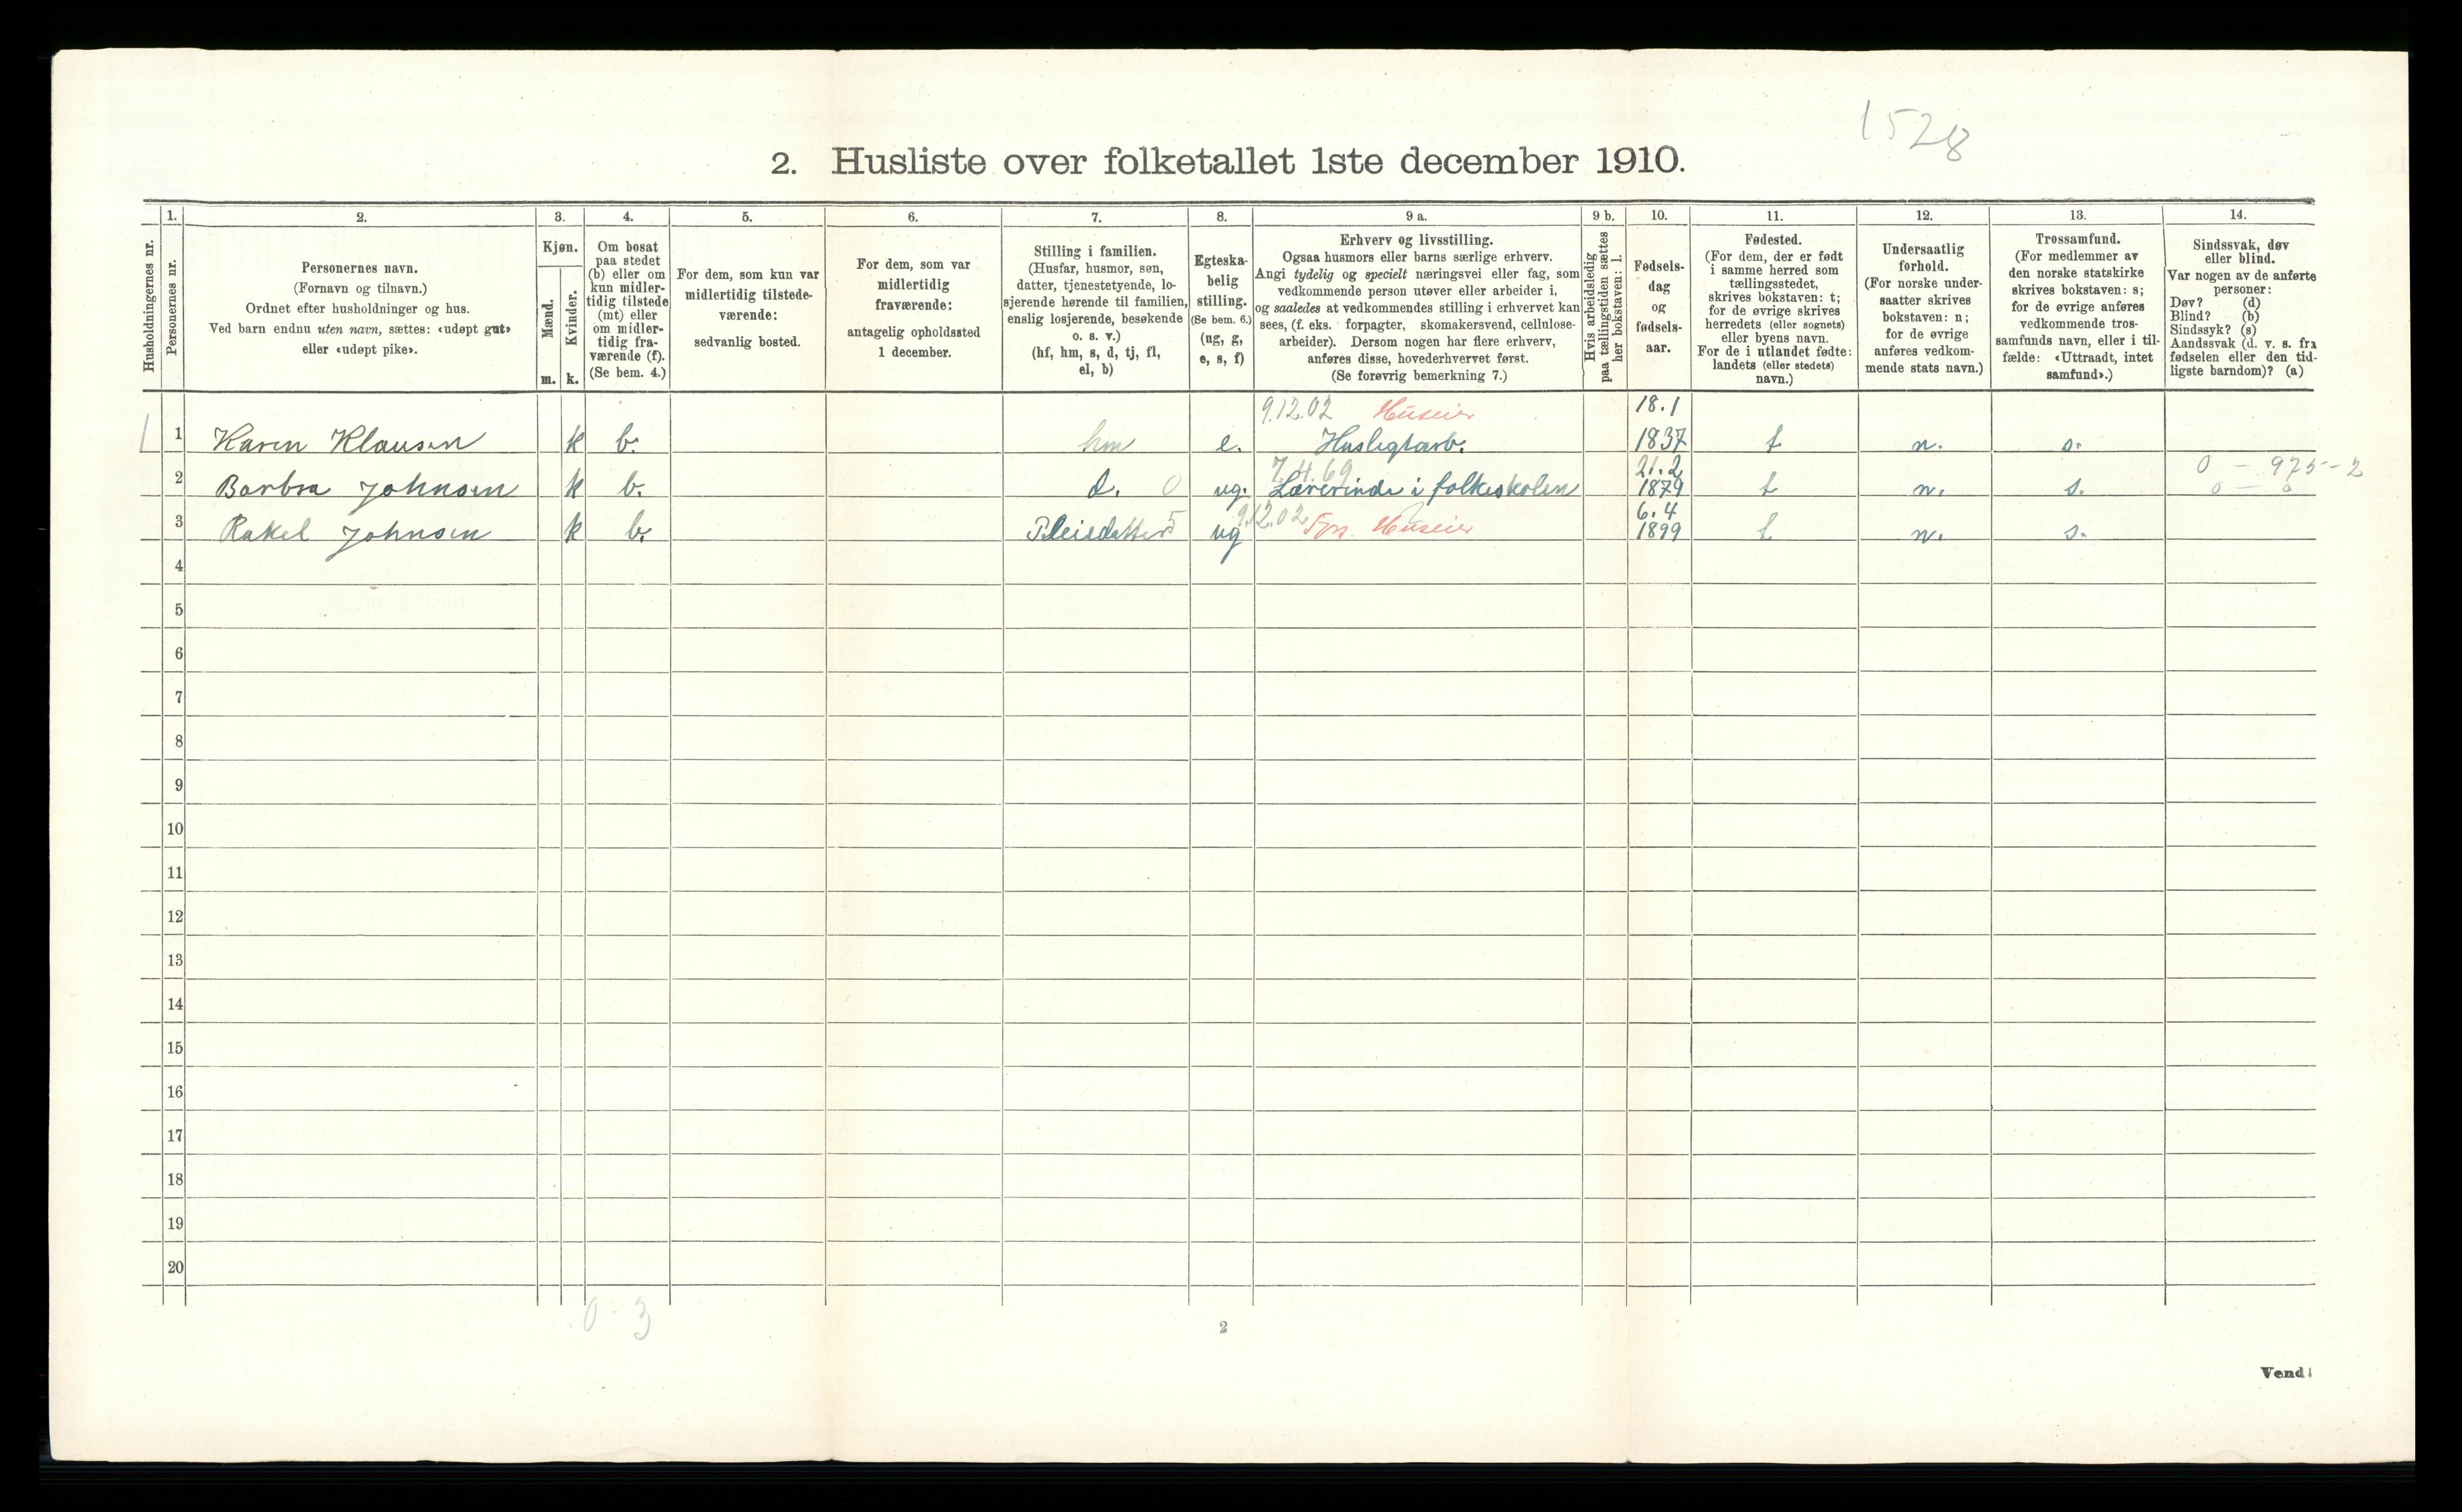 1528
2. Husliste over folketallet 1ste december 1910.
Husholdningernes nr.
1.
Personernes nr.
2.
Personernes navn.
(Fornavn og tilnavn.)
Ordnet efter husholdninger og hus.
Ved barn endnu uten navn, sættes: «udøpt gut»
eller «udøpt pike».
3.
Kjøn.
Mænd.
m.
Kvinder.
k.
4.
Om bosat
paa stedet
(b) eller om
kun midler-
tidig tilstede
(mt) eller
om midler-
tidig fra-
værende (f).
(Se bem. 4.)
5.
For dem, som kun var
midlertidig tilstede-
værende:
sedvanlig bosted.
6.
For dem, som var
midlertidig
fraværende:
antagelig opholdssted
1 december.
7.
Stilling i familien.
(Husfar, husmor, søn,
datter, tjenestetyende, lo-
sjerende hørende til familien,
enslig losjerende, besøkende
o. s. v.)
(hf, hm, s, d, tj, fl,
el, b)
8.
Egteska-
belig
stilling.
(Se bem. 6.)
(ug, g,
e, s, f)
9 a.
Erhverv og livsstilling.
Ogsaa husmors eller barns særlige erhverv.
Angi tydelig og specielt næringsvei eller fag, som
vedkommende person utøver eller arbeider i,
og saaledes at vedkommendes stilling i erhvervet kan
sees, (f. eks. forpagter, skomakersvend, cellulose-
arbeider). Dersom nogen har flere erhverv,
anføres disse, hovederhvervet først.
(Se forøvrig bemerkning 7.)
9 b.
Hvis arbeidsledig
paa tællingstiden sættes
her bokstaven: l.
10.
Fødsels-
dag
og
fødsels-
aar.
11.
Fødested.
(For dem, der er født
i samme herred som
tællingsstedet,
skrives bokstaven: t;
for de øvrige skrives
herredets (eller sognets)
eller byens navn.
For de i utlandet fødte:
landets (eller stedets)
navn.)
12.
Undersaatlig
forhold.
(For norske under-
saatter skrives
bokstaven: n;
for de øvrige
anføres vedkom-
mende stats navn.)
13.
Trossamfund.
(For medlemmer av
den norske statskirke
skrives bokstaven: s;
for de øvrige anføres
vedkommende tros-
samfunds navn, eller i til-
fælde: «Uttraadt, intet
samfund».)
14.
Sindssvak, døv
eller blind.
Var nogen av de anførte
personer:
Døv? (d)
Blind? (b)
Sindssyk? (s)
Aandssvak (d. v. s. fra
fødselen eller den tid-
ligste barndom)? (a)
9.12.02 Huseier 18.1
1 Karen Klausen k b. hm e. Husligtarb. 1837 t n. s.
7.4.69 21.2 0 - 975-2
2 Barbra Johnsen k b. d. 0 ug. Lærerinde i folkeskolen 1879 t n. s. 0 - 0
9.12.02 Fors. Huseier 6.4
3 Rakel Johnsen k b. Pleiedatter 5 ug 1899 t n. s.
4
5
6
7
8
9
10
11
12
13
14
15
16
17
18
19
20
0 - 3
2
Vend!